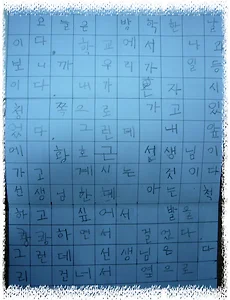 고 방학한 날
이다. 학교에서 나와
보니까 우리가 일등
이다. 내가 본 자 시
쪽으로 가고 있
었다. 그런데 내 앞
에 황호근 선생님이
가고 계시는 것이다
선생님한테 아는 척
하고 싶어서 발을
쾅쾅하면서 걸었다
그런데 선생님은 다
리 건너서 옆으로